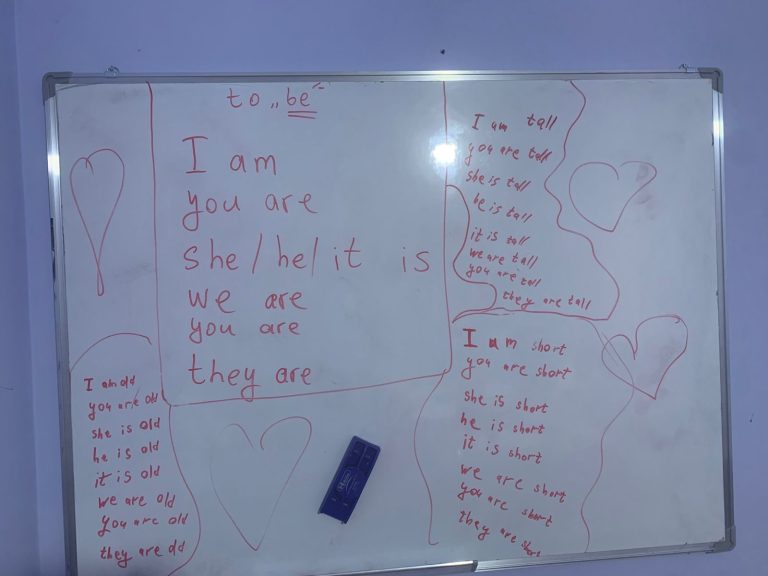 to „be"
I am
you are
she/he/it is
we are
you are
they are
I am tall
you are tall
she is tall
he is tall
it is tall
we are tall
you are tall
they are tall
I am short
you are short
she is short
he is short
it is short
we are short
you are short
they are short
I am old
you are old
she is old
he is old
it is old
we are old
you are old
they are old